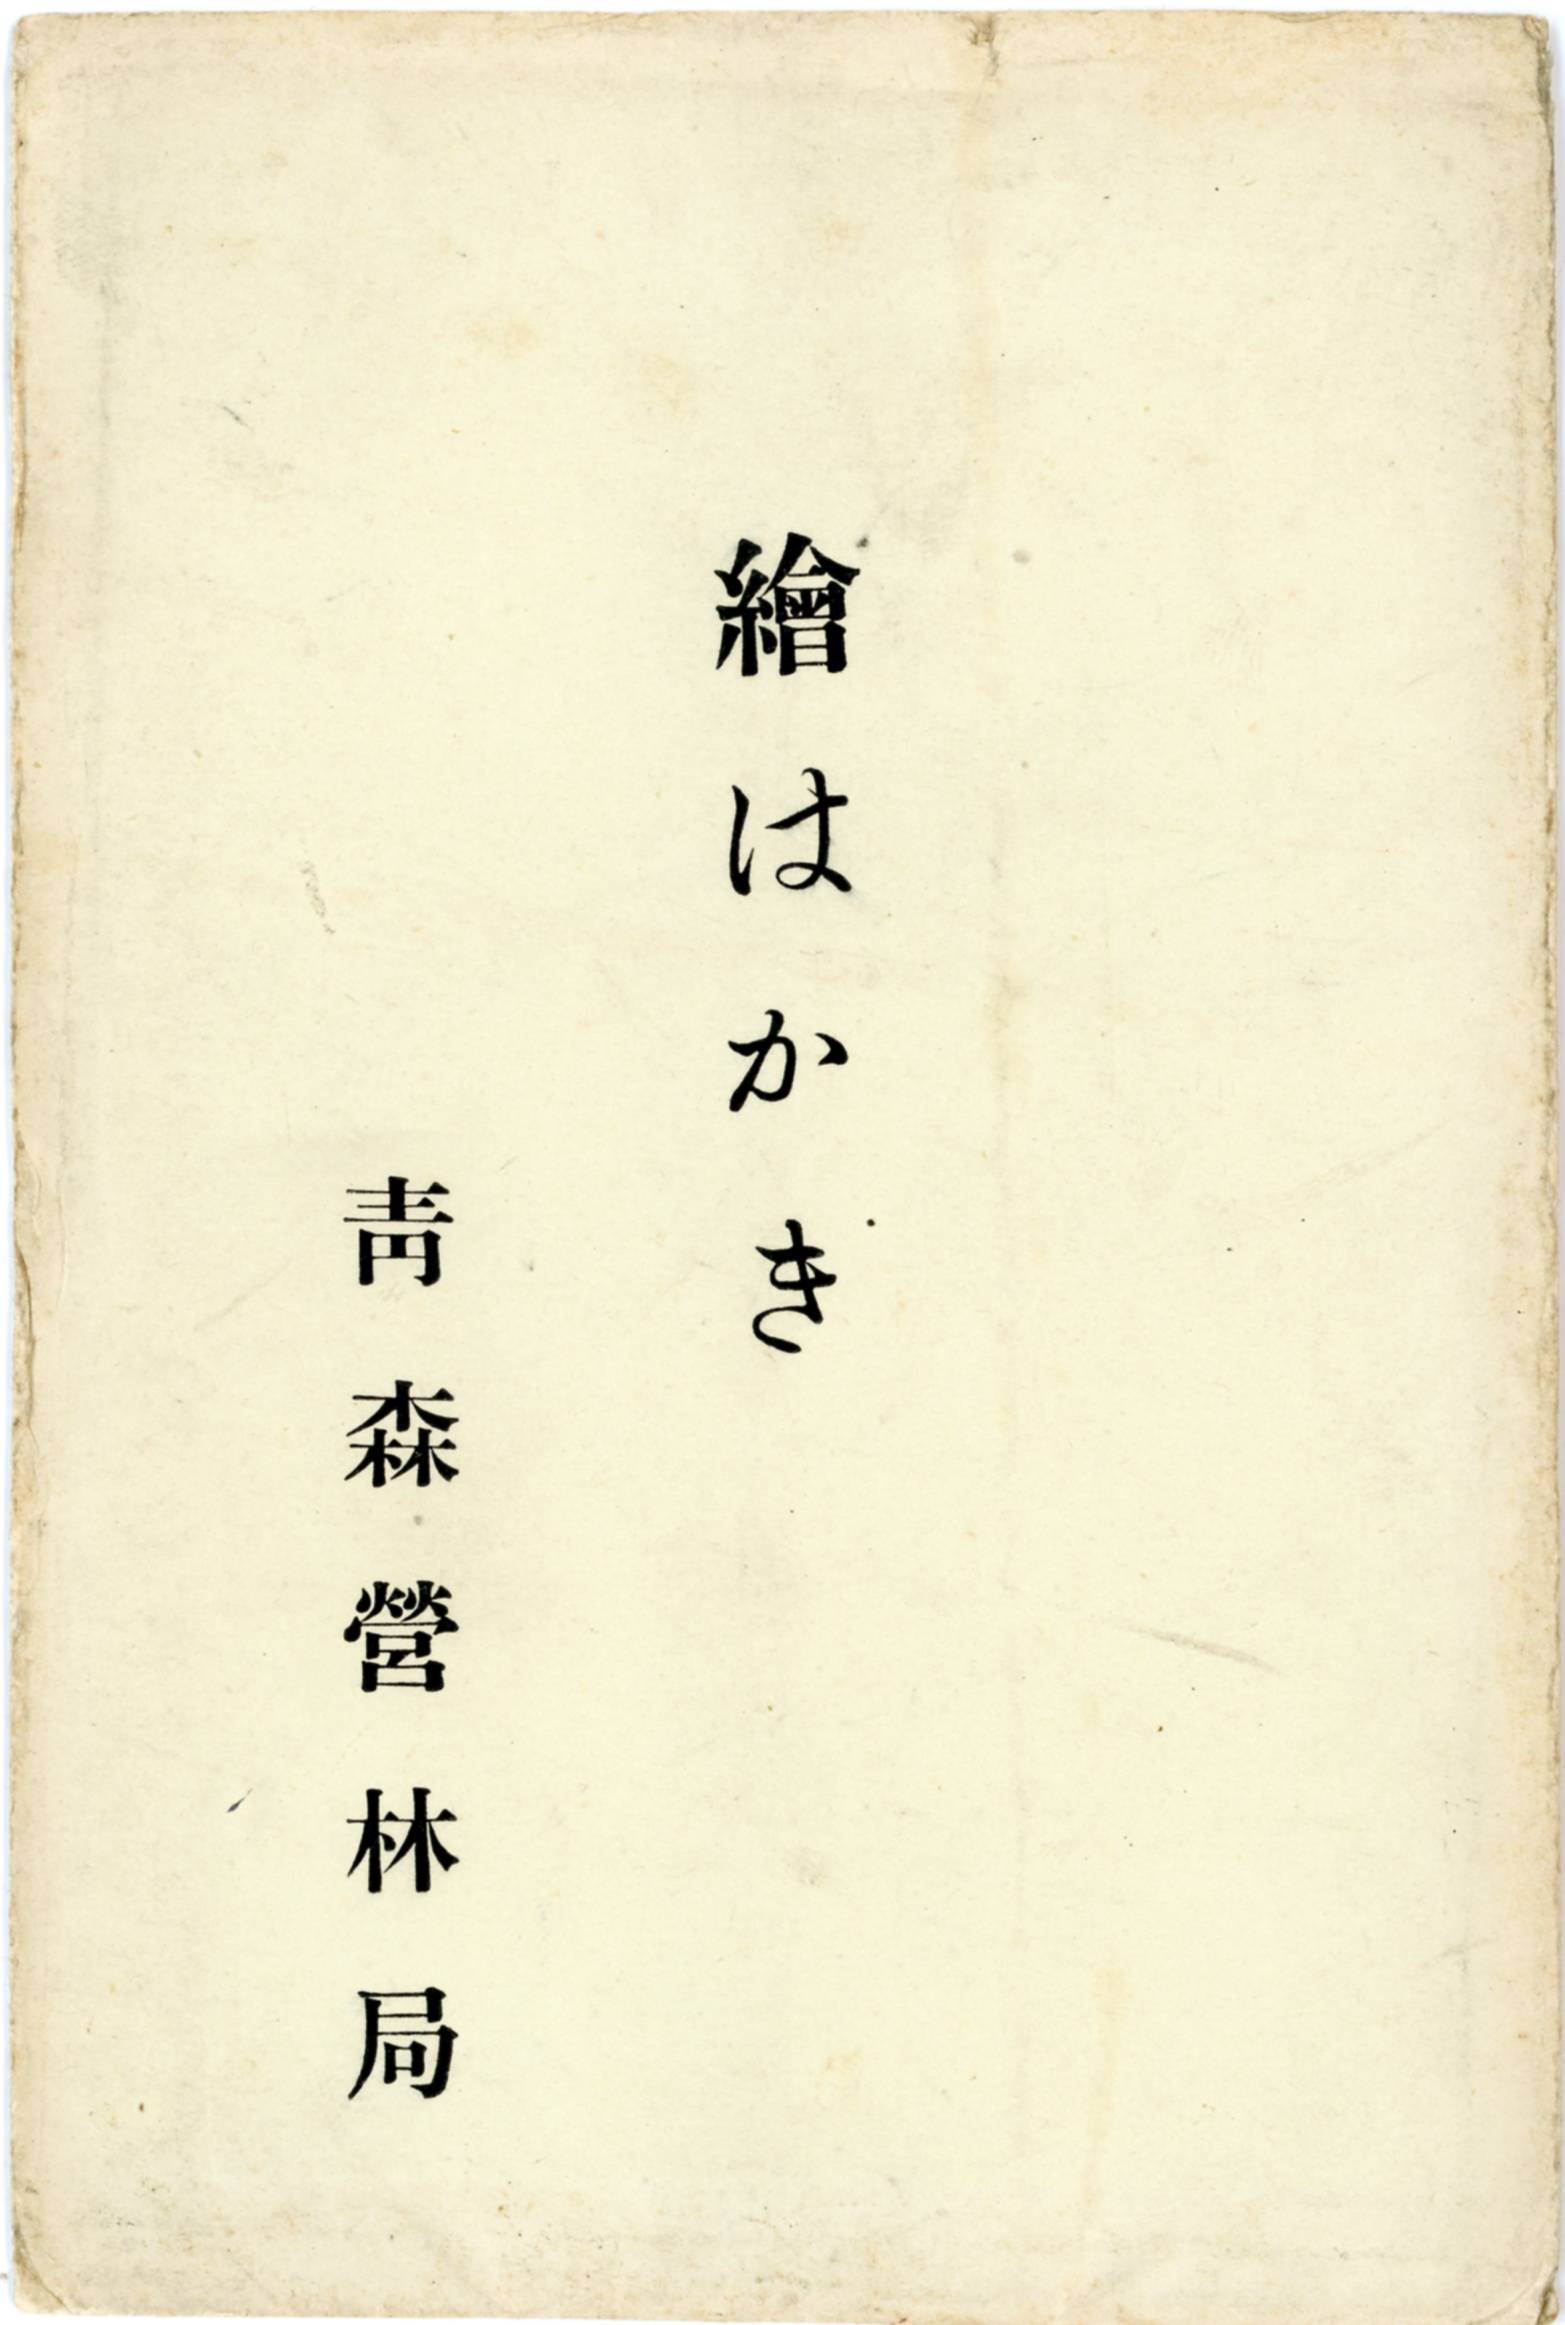 繪はかき
靑森營林局